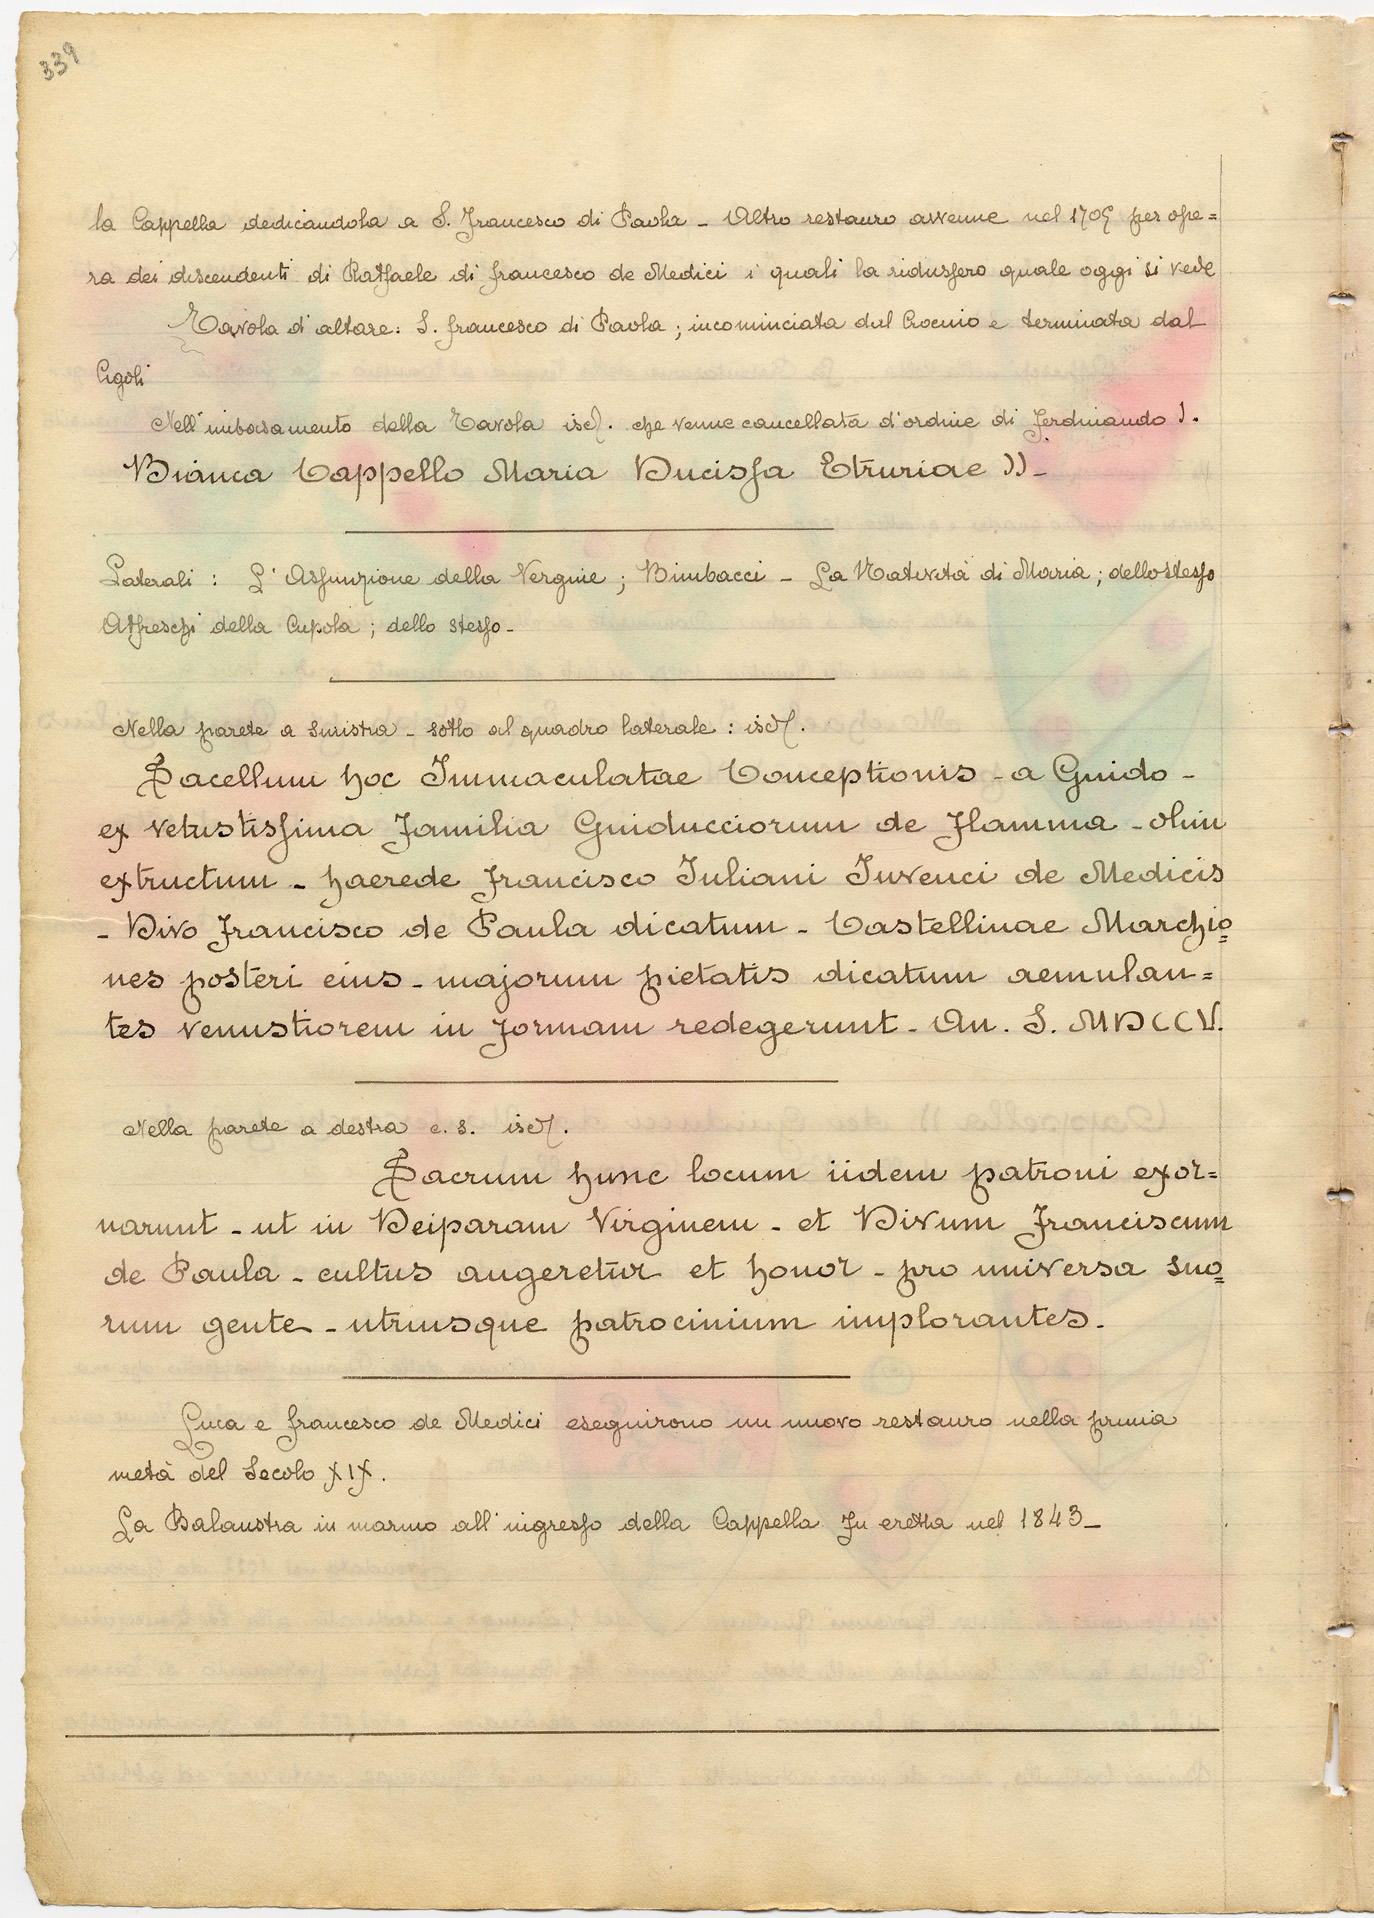 339
la Cappella dedicandola a S. Francesco di Paola - Altro restauro avvenne nel 1705 per ope=
ra dei discendenti di Raffaele di Francesco de Medici i quali la ridussero quale oggi si vede
Tavola d'altare: S. Francesco di Paola; incominciata dal Crocnio e terminata dal
Cigoli
Nell'imbasamento della Tavola iscr. che venne cancellata d'ordine di Ferdinando I.
Bianca Cappello Maria Ducissa Etruriae II -
Laterali: L'Assunzione della Vergine; Bimbacci - La Natività di Maria; dello stesso
Affreschi della Cupola; dello stesso -
Nella parete a sinistra - sotto al quadro laterale: iscr.
Sacellum hoc Immaculatae Conceptionis - a Guido -
ex vetustissima Familia Guiducciorum de Flamma - olim
extructum - haerede Francisco Iuliani Iuvenci de Medicis
- Divo Francisco de Paula dicatum - Castellinae Marchio=
nes posteri eius - majorum pietatis dicatum aemulan=
tes venustiorem in formam redegerunt - An. S. MDCCV.
Nella parete a destra c. s. iscr.
Sacrum hunc locum iidem patroni exor=
narunt - ut in Deiparam Virginem - et Divum Franciscum
de Paula - cultus augeretur et honor - pro universa suo=
rum gente - utriusque patrocinium implorantes.
Luca e Francesco de Medici eseguirono un nuovo restauro nella prima
metà del Secolo XIX.
La Balaustra in marmo all'ingresso della Cappella fu eretta nel 1843 -